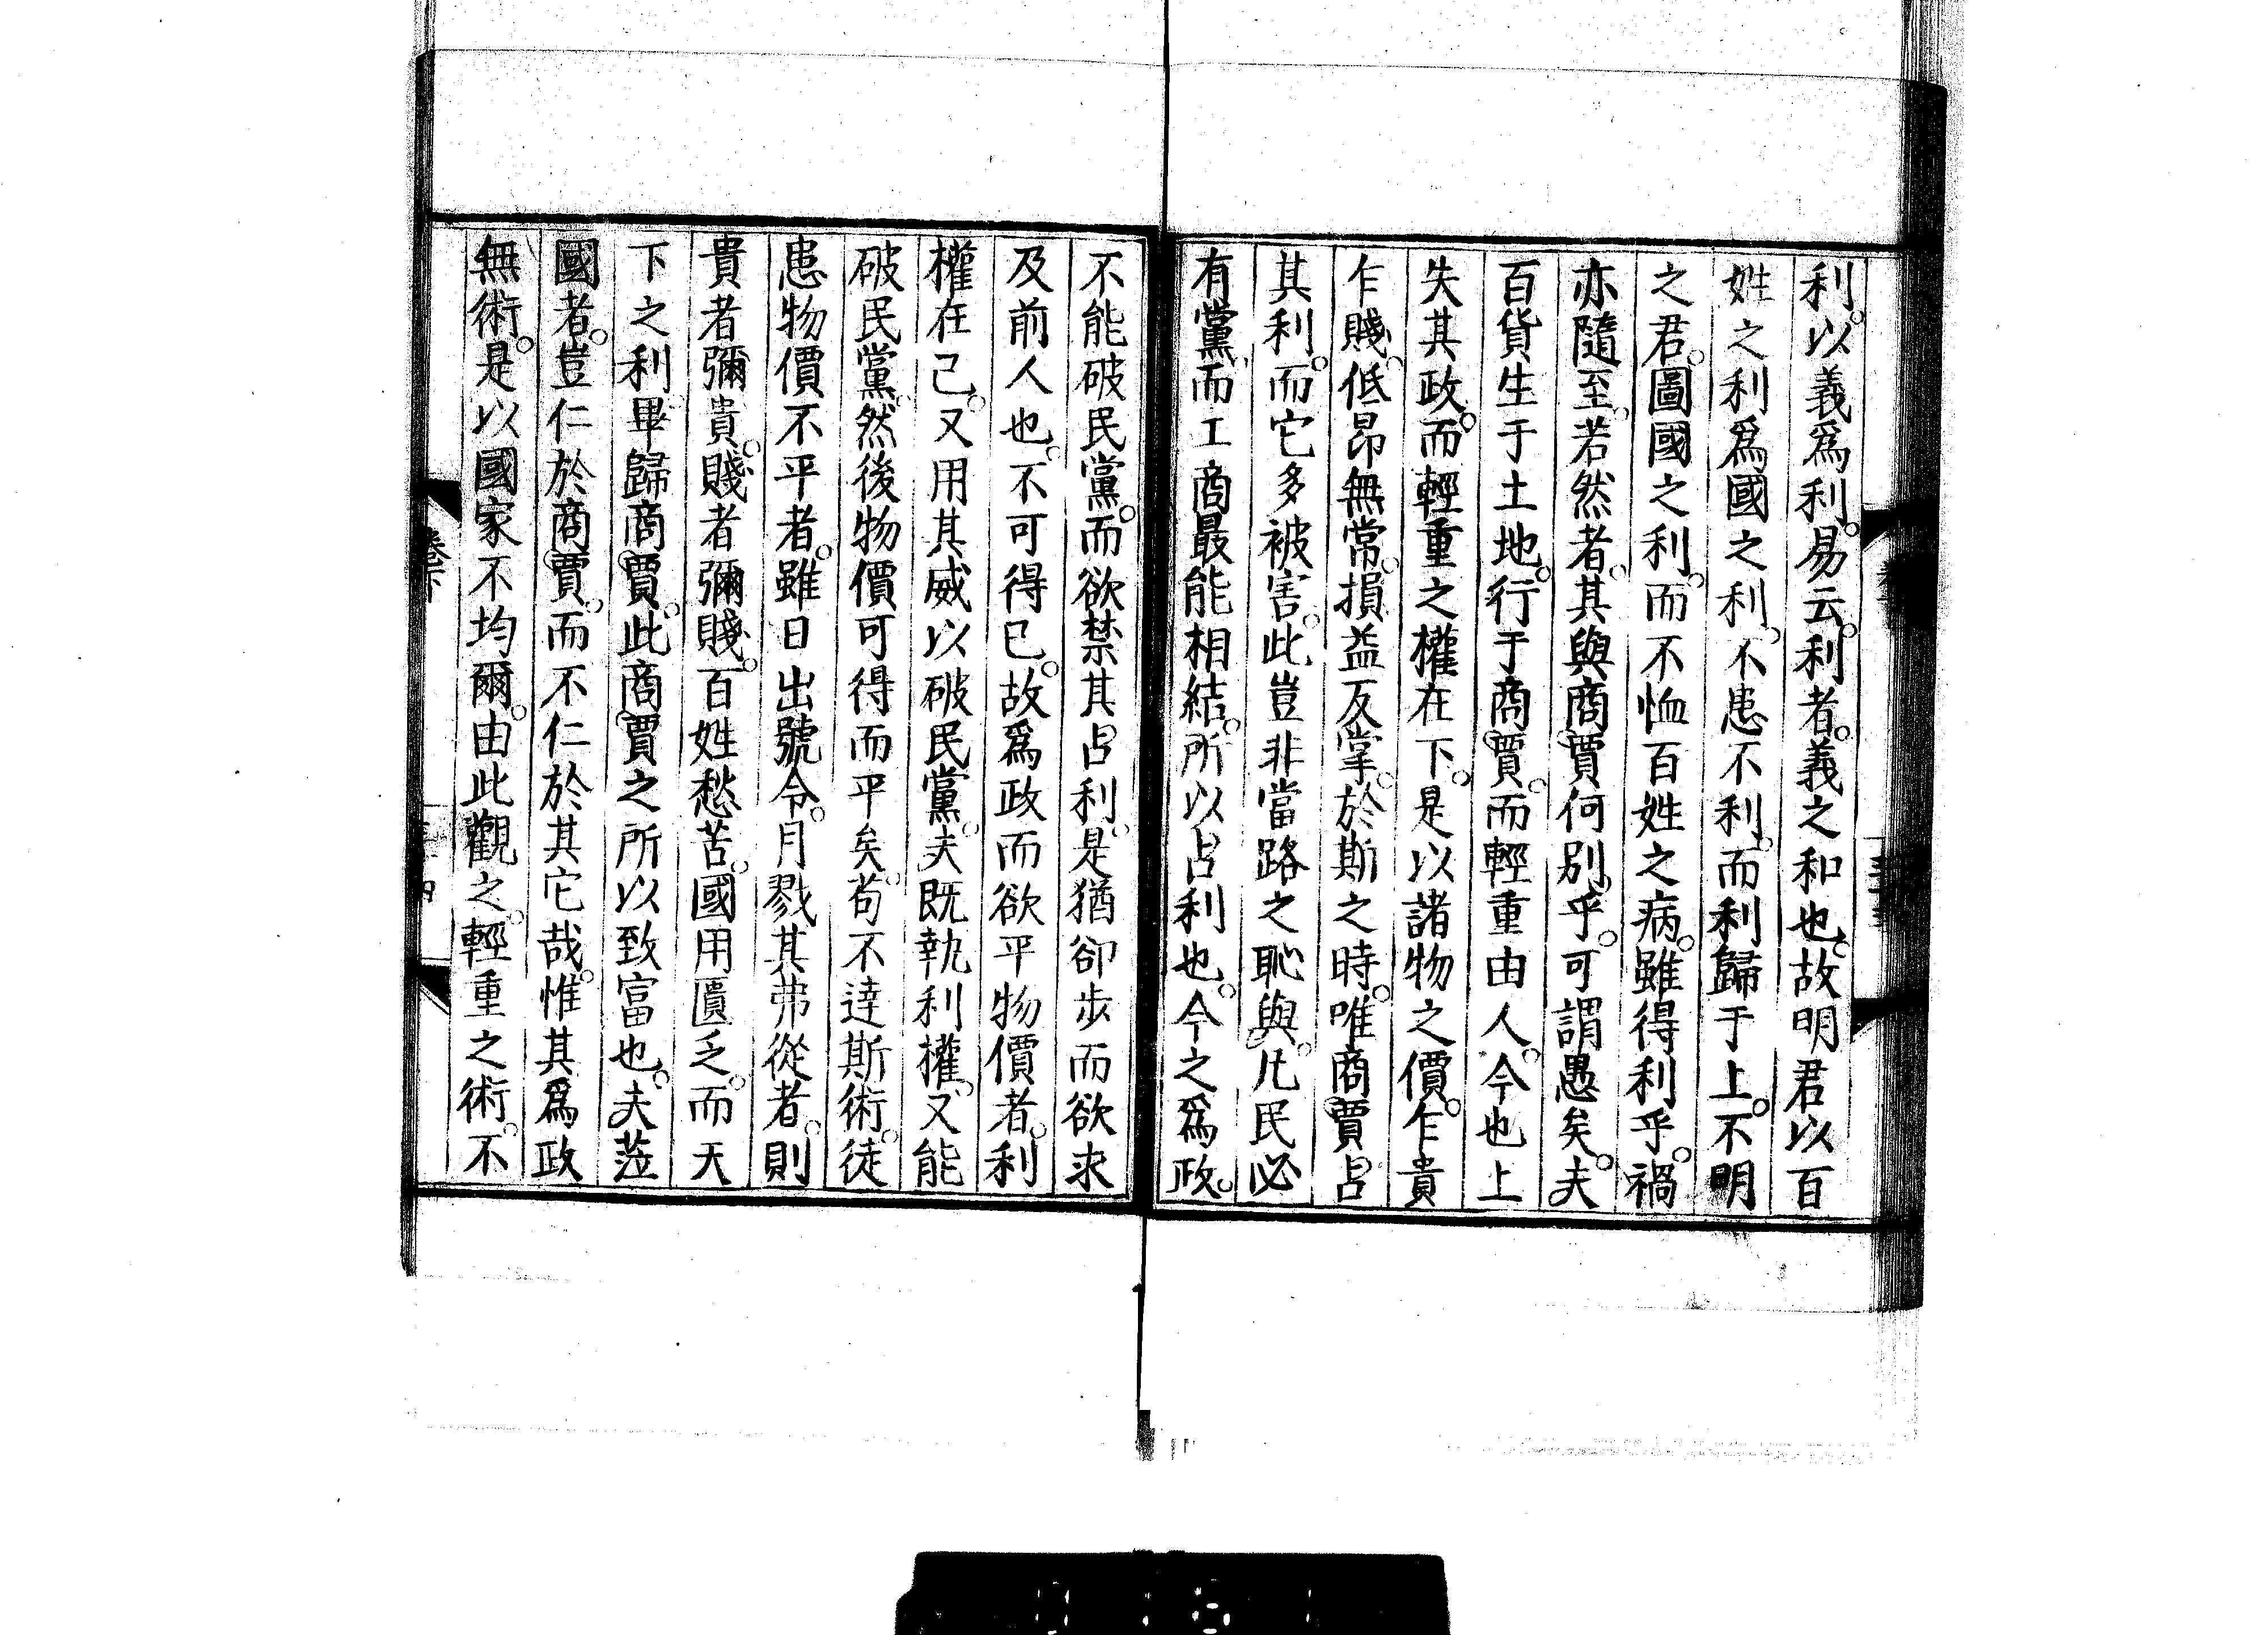 利。以義爲利。易云。利者。義之和也。故明君以百
姓之利爲國之利。不患不利。而利歸于上。不明
之君。圖國之利。而不恤百姓之病。雖得利乎。禍
亦隨至。若然者。其與商賈何別乎。可謂愚矣。夫
百貨生于土地。行于商賈。而輕重由人。今也上
失其政。而輕重之權在下。是以諸物之價。乍貴
乍賤。低昂無常。損益反掌。於斯之時。唯商賈占
其利。而它多被害。此豈非當路之恥與。凡民必
有黨。而工商最能相結。所以占利也。今之爲政。
不能破民黨。而欲禁其占利。是猶卻步而欲求
及前人也。不可得已。故爲政而欲平物價者。利
權在己。又用其威以破民黨。夫既執利權。又能
破民黨。然後物價可得而平矣。苟不達斯術。徒
患物價不平者。雖日出號令。月戮其弗從者。則
貴者彌貴。賤者彌賤。百姓愁苦。國用匱乏。而天
下之利畢歸商賈。此商賈之所以致富也。夫蒞
國者。豈仁於商賈。而不仁於其它哉。惟其爲政
無術。是以國家不均爾。由此觀之。輕重之術。不
卷下